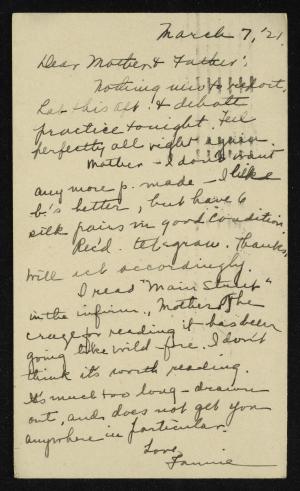 March 7, '21.
Dear Mother & Father:
Nothing new to report,
Lab this aft. & debate
practice tonight. Feel
perfectly all right again.
Mother - I don't want
any more p. made - I like
b.'s better, but have 6
silk pairs in good condition.
Rec'd. telegram. Thanks,
will act accordingly.
I read "Main Street"
in the infirm., Mother. The
craze for reading it has been
going like wild-fire. I don't
think it's worth reading.
It's much too long-drawn
out, and does not get you
anywhere in particular.
Love,
Fannie